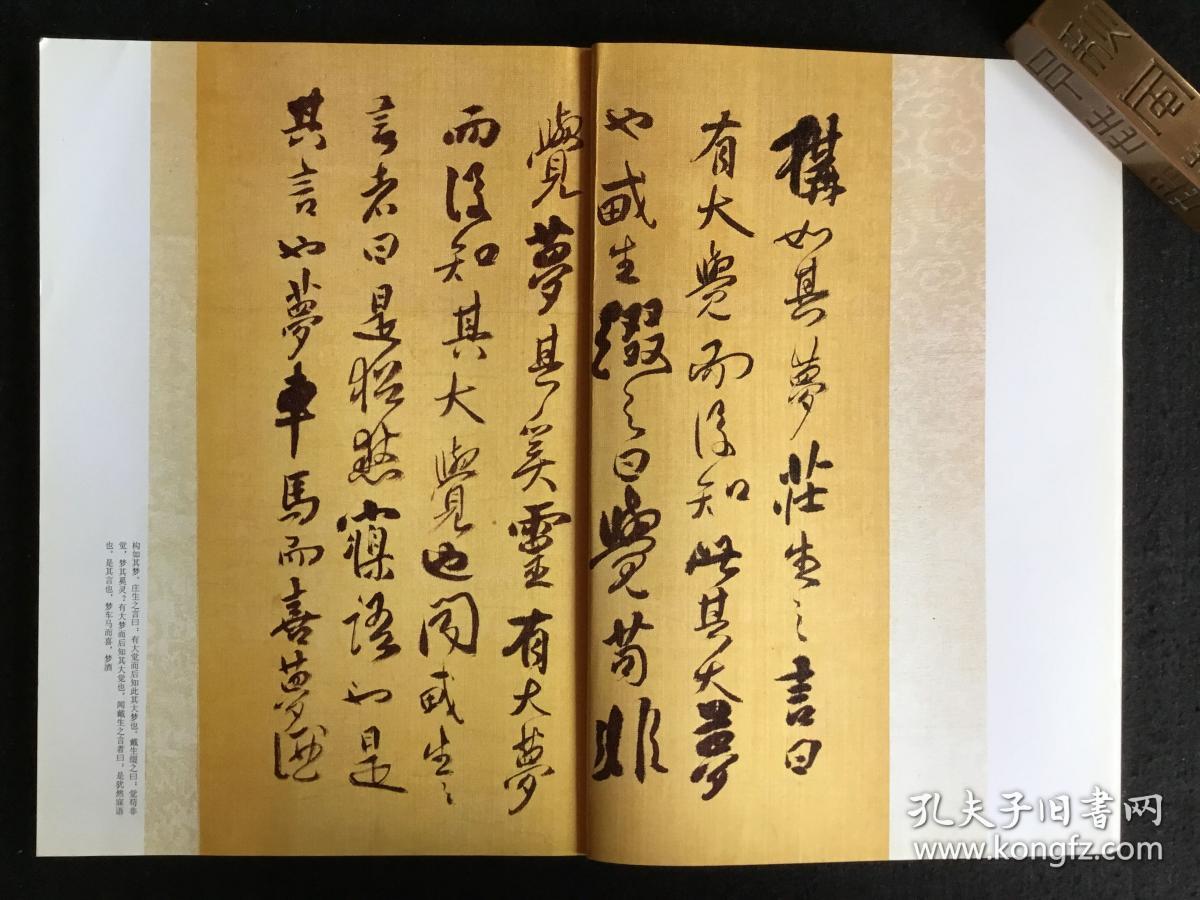 構如其夢莊生之言曰
有大覺而後知此其大夢
也戴生綴之曰覺苟非
覺夢其奚靈有大夢
而後知其大覺也聞戴生之
言者曰是猶然寱語也是
其言也夢車馬而喜夢酒
构如其梦。庄生之言曰:有大觉而后知此其大梦也。戴生缀之曰:觉苟非
觉,梦其奚灵?有大梦而后知其大觉也。闻戴生之言者曰:是犹然寐语
也。是其言也,梦车马而喜,梦酒
孔夫子旧书网
www.kongfz.com